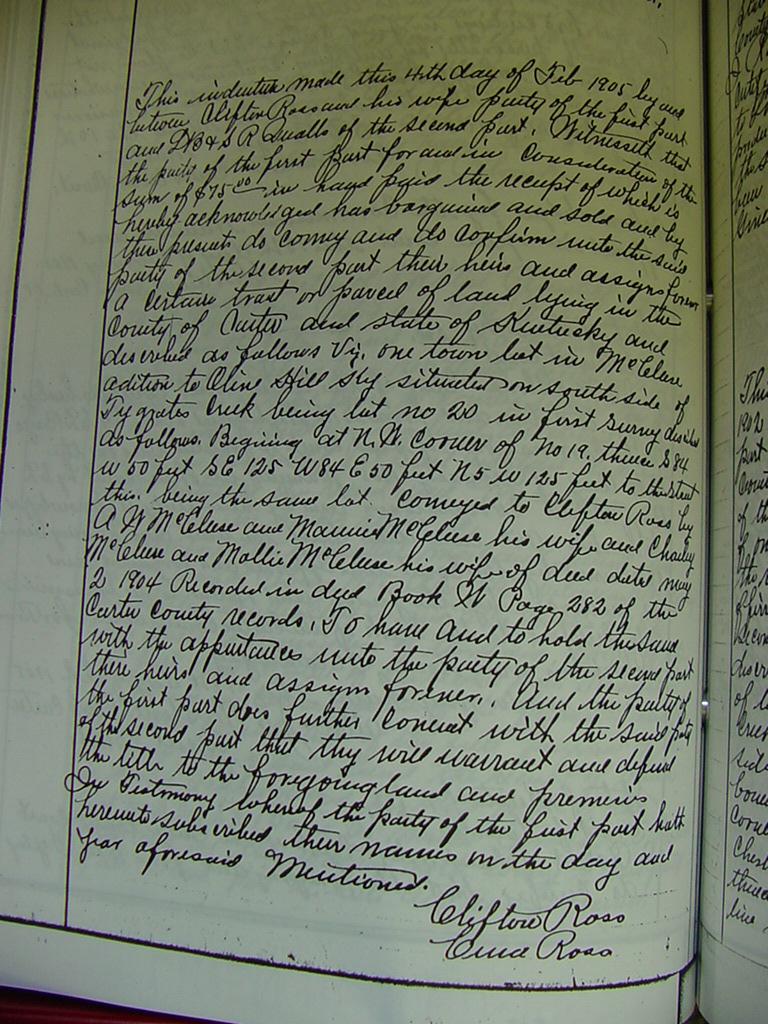 This indenture made this 4th day of Feb 1905 by and
between Clifton Ross and his wife party of the first part
and D B & S R Qualls of the second part. Witnesseth that
the party of the first part for and in consideration of the
sum of $75.00 in hand paid the receipt of which is
hereby acknowledged has bargained and sold and by
these presents do convey and do confirm unto the said
party of the second part their heirs and assigns forever
a certain tract or parcel of land lying in the
County of Carter and state of Kentucky and
described as follows Viz. one town lot in McCluse
adition to Oline Hill Ky situated on south side of
Tygrates Creek being lot no 20 in first survey described
as follows. Begining at N.W. Corner of No 19, thence S 84
W 50 feet S E 125 W 84 E 50 feet N 5 W 125 feet to the
this. being the same lot conveyed to Clifton Ross by
A W McCluse and Mannie McCluse his wife and Charley
McCluse and Mollie McCluse his wife of deed date may
2 1904 Recorded in deed Book W Page 282 of the
Carter County records. To have and to hold the same
with the appurtances unto the party of the second part
there heirs and assigns forever. And the party of
the first part does further convent with the said party
of the second part that thy will warrant and defend
the title to the foregoing land and premises
In Testimony whereof the party of the first part hath
hereunto subscribed their names on the day and
year aforesaid Mentioned.
Clifton Ross
Ross